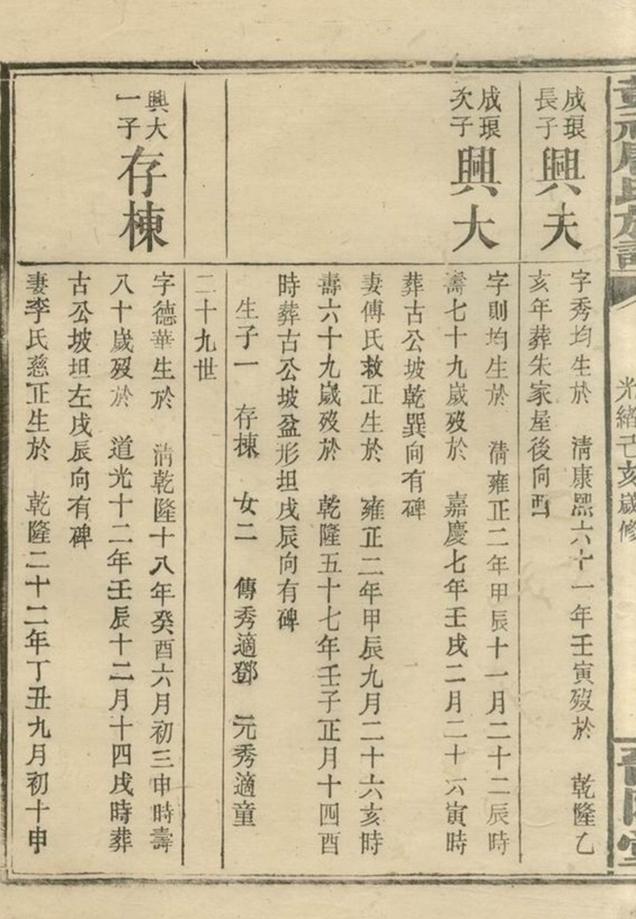 光緒己亥歲修
成琅
長子
興夫
字秀均生於 淸康熙六十一年壬寅歿於 乾隆乙
亥年葬朱家屋後向酉
成琅
次子
興大
字則均生於 淸雍正二年甲辰十一月二十二辰時
壽七十九歲歿於 嘉慶七年壬戌二月二十六寅時
葬古公坡乾巽向有碑
妻傅氏救正生於 雍正二年甲辰九月二十六亥時
壽六十九歲歿於 乾隆五十七年壬子正月十四酉
時葬古公坡盆形坦戌辰向有碑
生子一 存棟 女二 傳秀適鄧 元秀適童
二十九世
興大
一子
存棟
字德華生於 淸乾隆十八年癸酉六月初三申時壽
八十歲歿於 道光十二年壬辰十二月十四戌時葬
古公坡坦左戌辰向有碑
妻李氏慈正生於 乾隆二十二年丁丑九月初十申